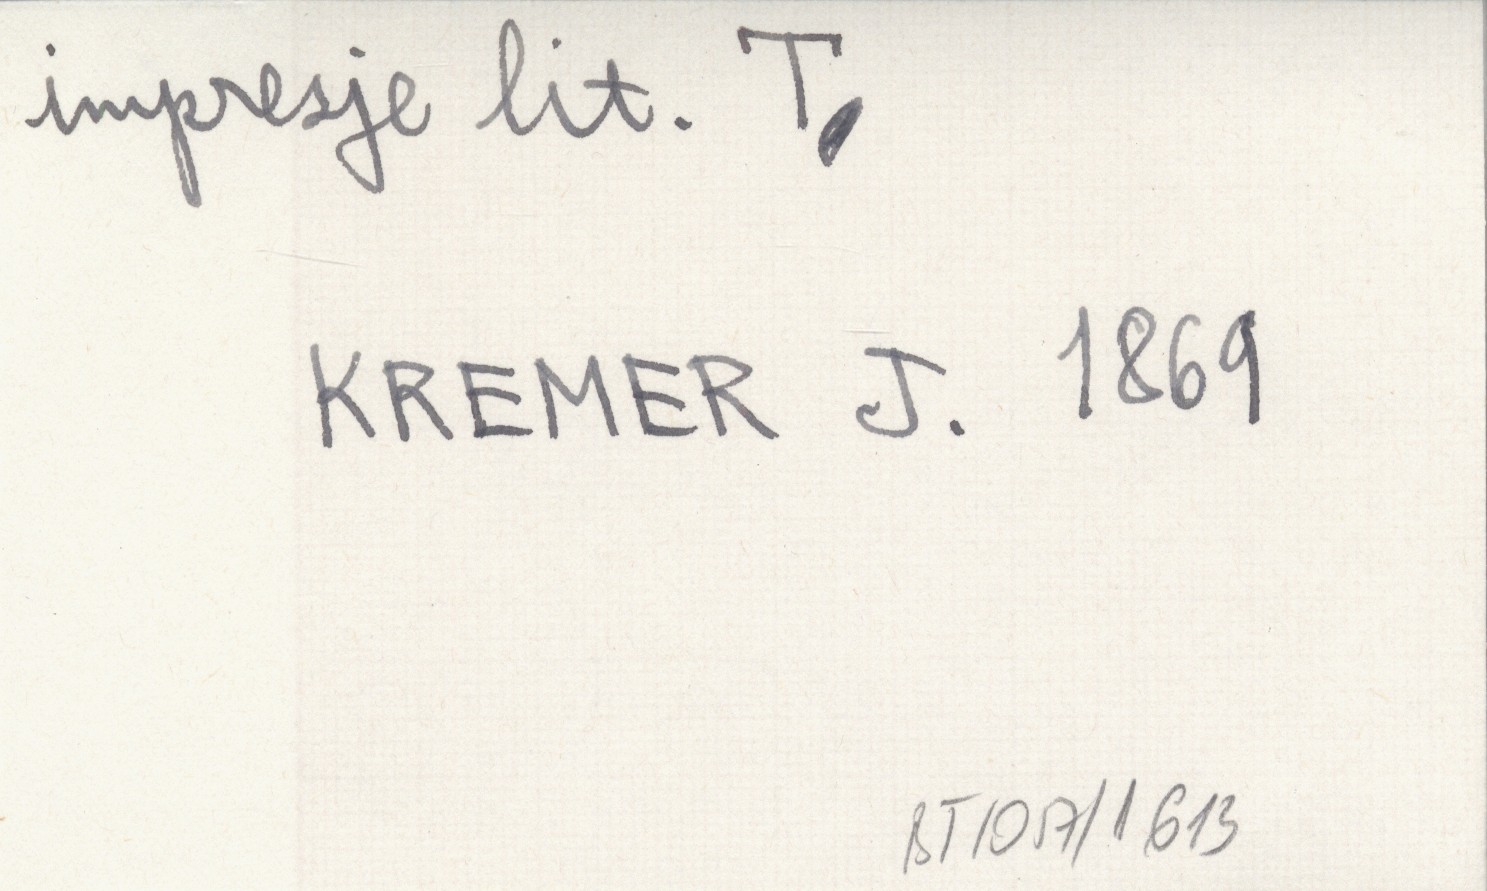 impresje lit. T.
KREMER J. 1869
BT/057/1613